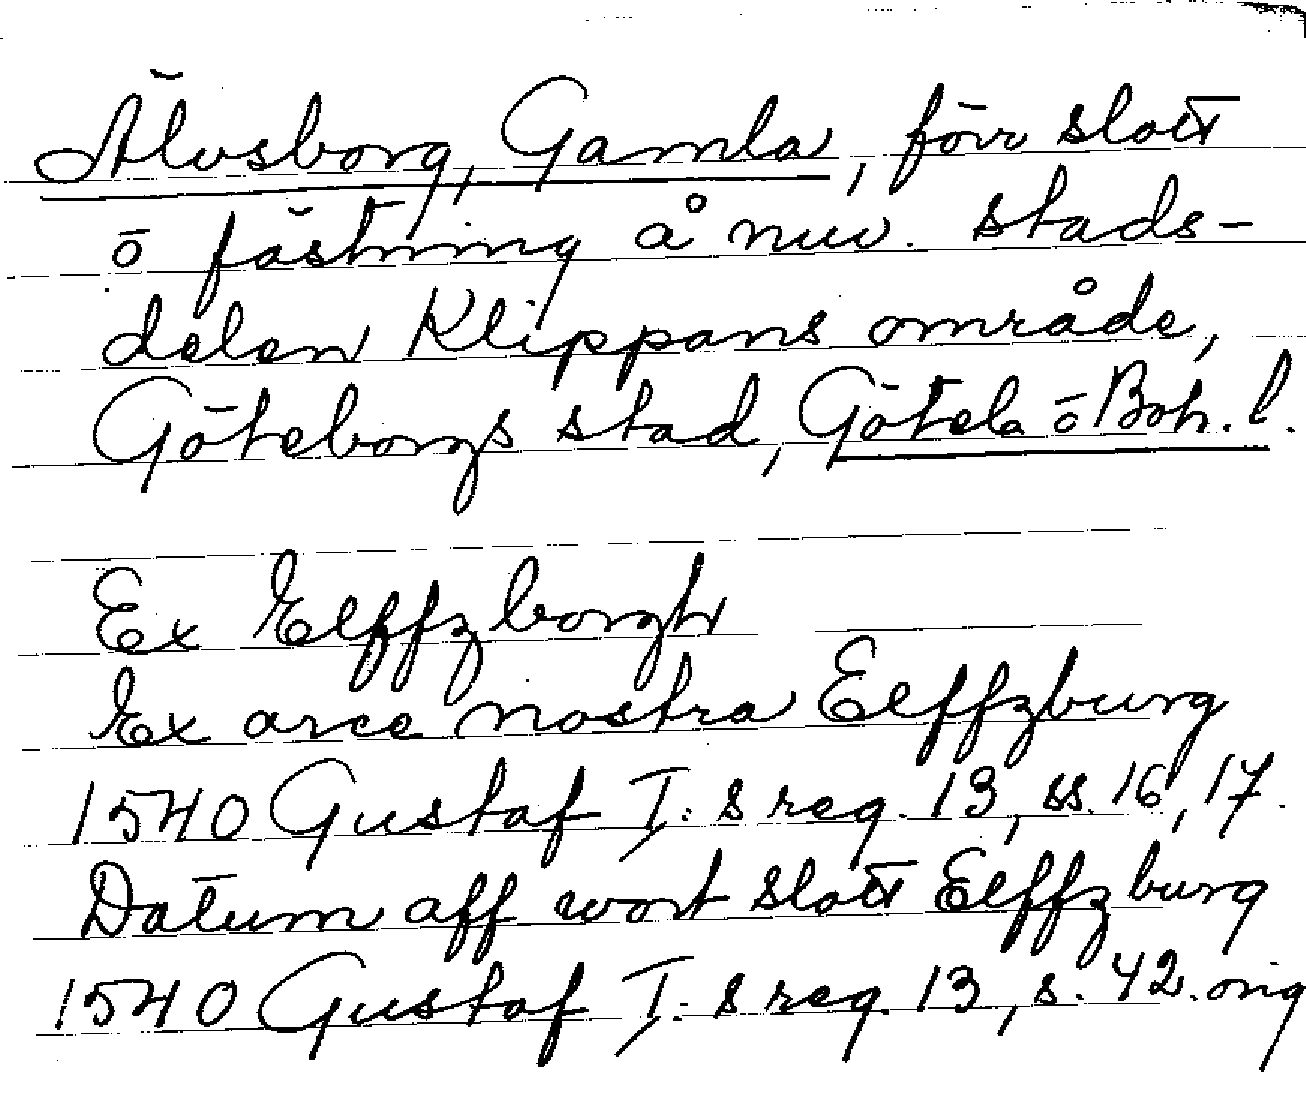 Älvsborg, Gamla, förr slott
o fästning å nuv. stads-
delen Klippans område,
Göteborgs stad, Götebs o Boh. l.
Ex Elffzborgh
Ex arce nostra Eelffzburg
1540 Gustaf I:s reg. 13, ss. 16, 17.
Datum aff wort slott Elffzburg
1540 Gustaf I:s reg. 13, s. 42. orig